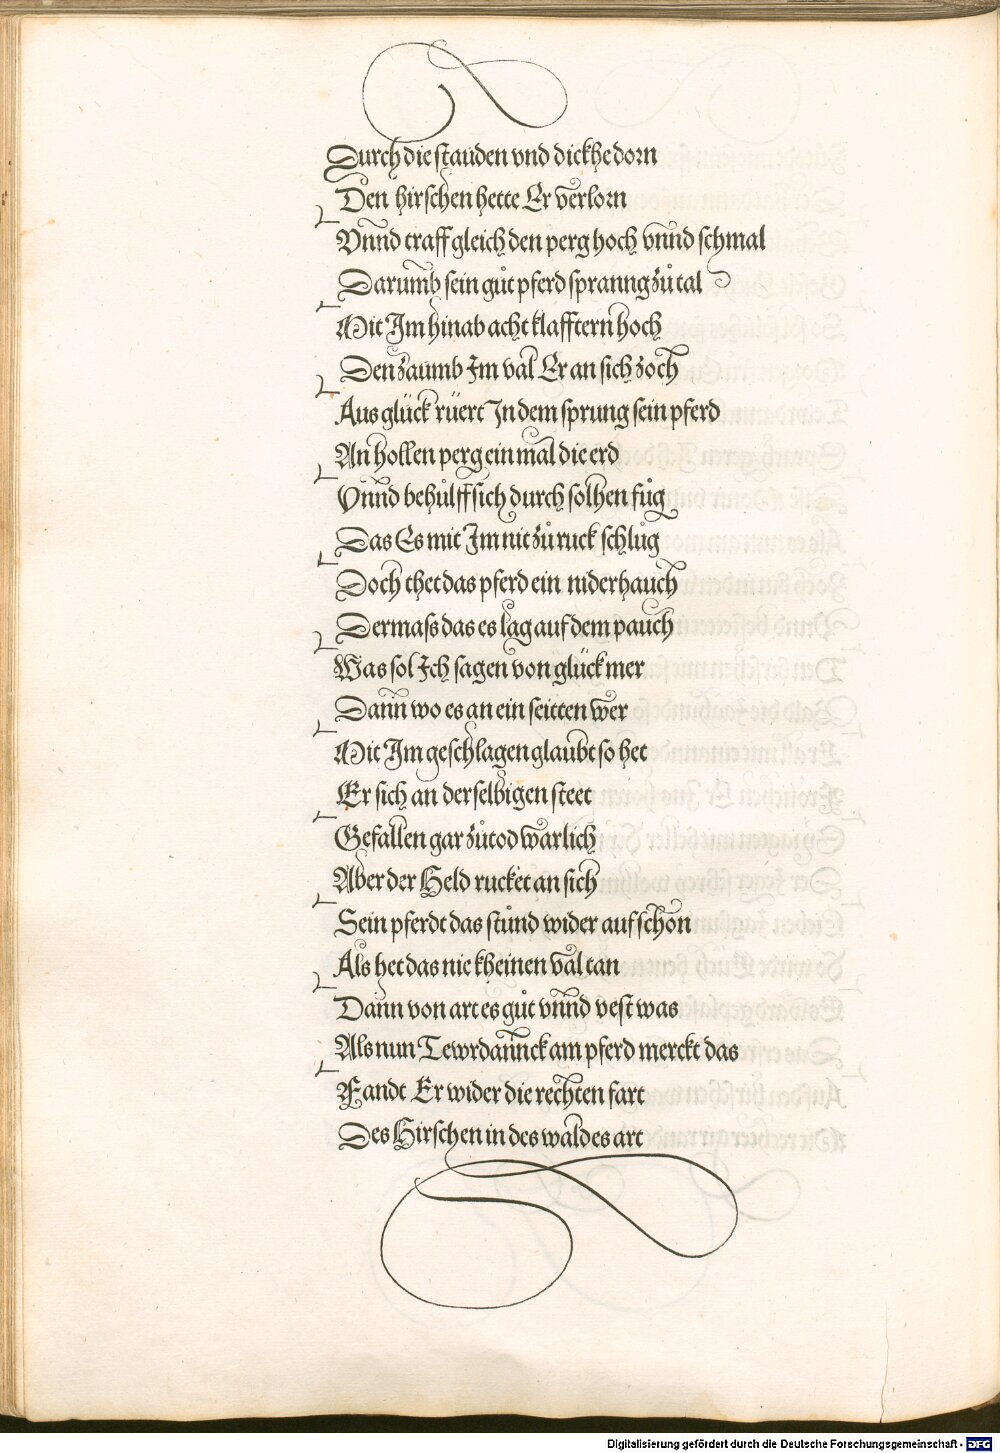 Durch die stauden vnd dickhe dorn
Den hirschen hette Er verlorn
Vnnd traff gleich den perg hoch vnnd schmal
Darumb sein gůt pferd spranng zů tal
Mit Im hinab acht klafftern hoch
Den zaumb Im val Er an sich zoch
Aus glück rüert In dem sprung sein pferd
An hollen perg ein mal die erd
Vnnd behůlff sich durch solhen fůg
Das Es mit Im nit zů ruck schlůg
Doch thet das pferd ein niderhauch
Dermaſs das es lag auf dem pauch
Was sol Ich sagen von glück mer
Dann wo es an ein seitten wer
Mit Im geschlagen glaubt so het
Er sich an derselbigen steet
Gefallen gar zů tod warlich
Aber der Held rucket an sich
Sein pferdt das stůnd wider auf schon
Als het das nie kheinen val tan
Dann von art es gůt vnnd vest was
Als nun Tewrdannck am pferd merckt das
Fandt Er wider die rechten fart
Des Hirschen in des waldes art
Digitalisierung gefördert durch die Deutsche Forschungsgemeinschaft - DFG